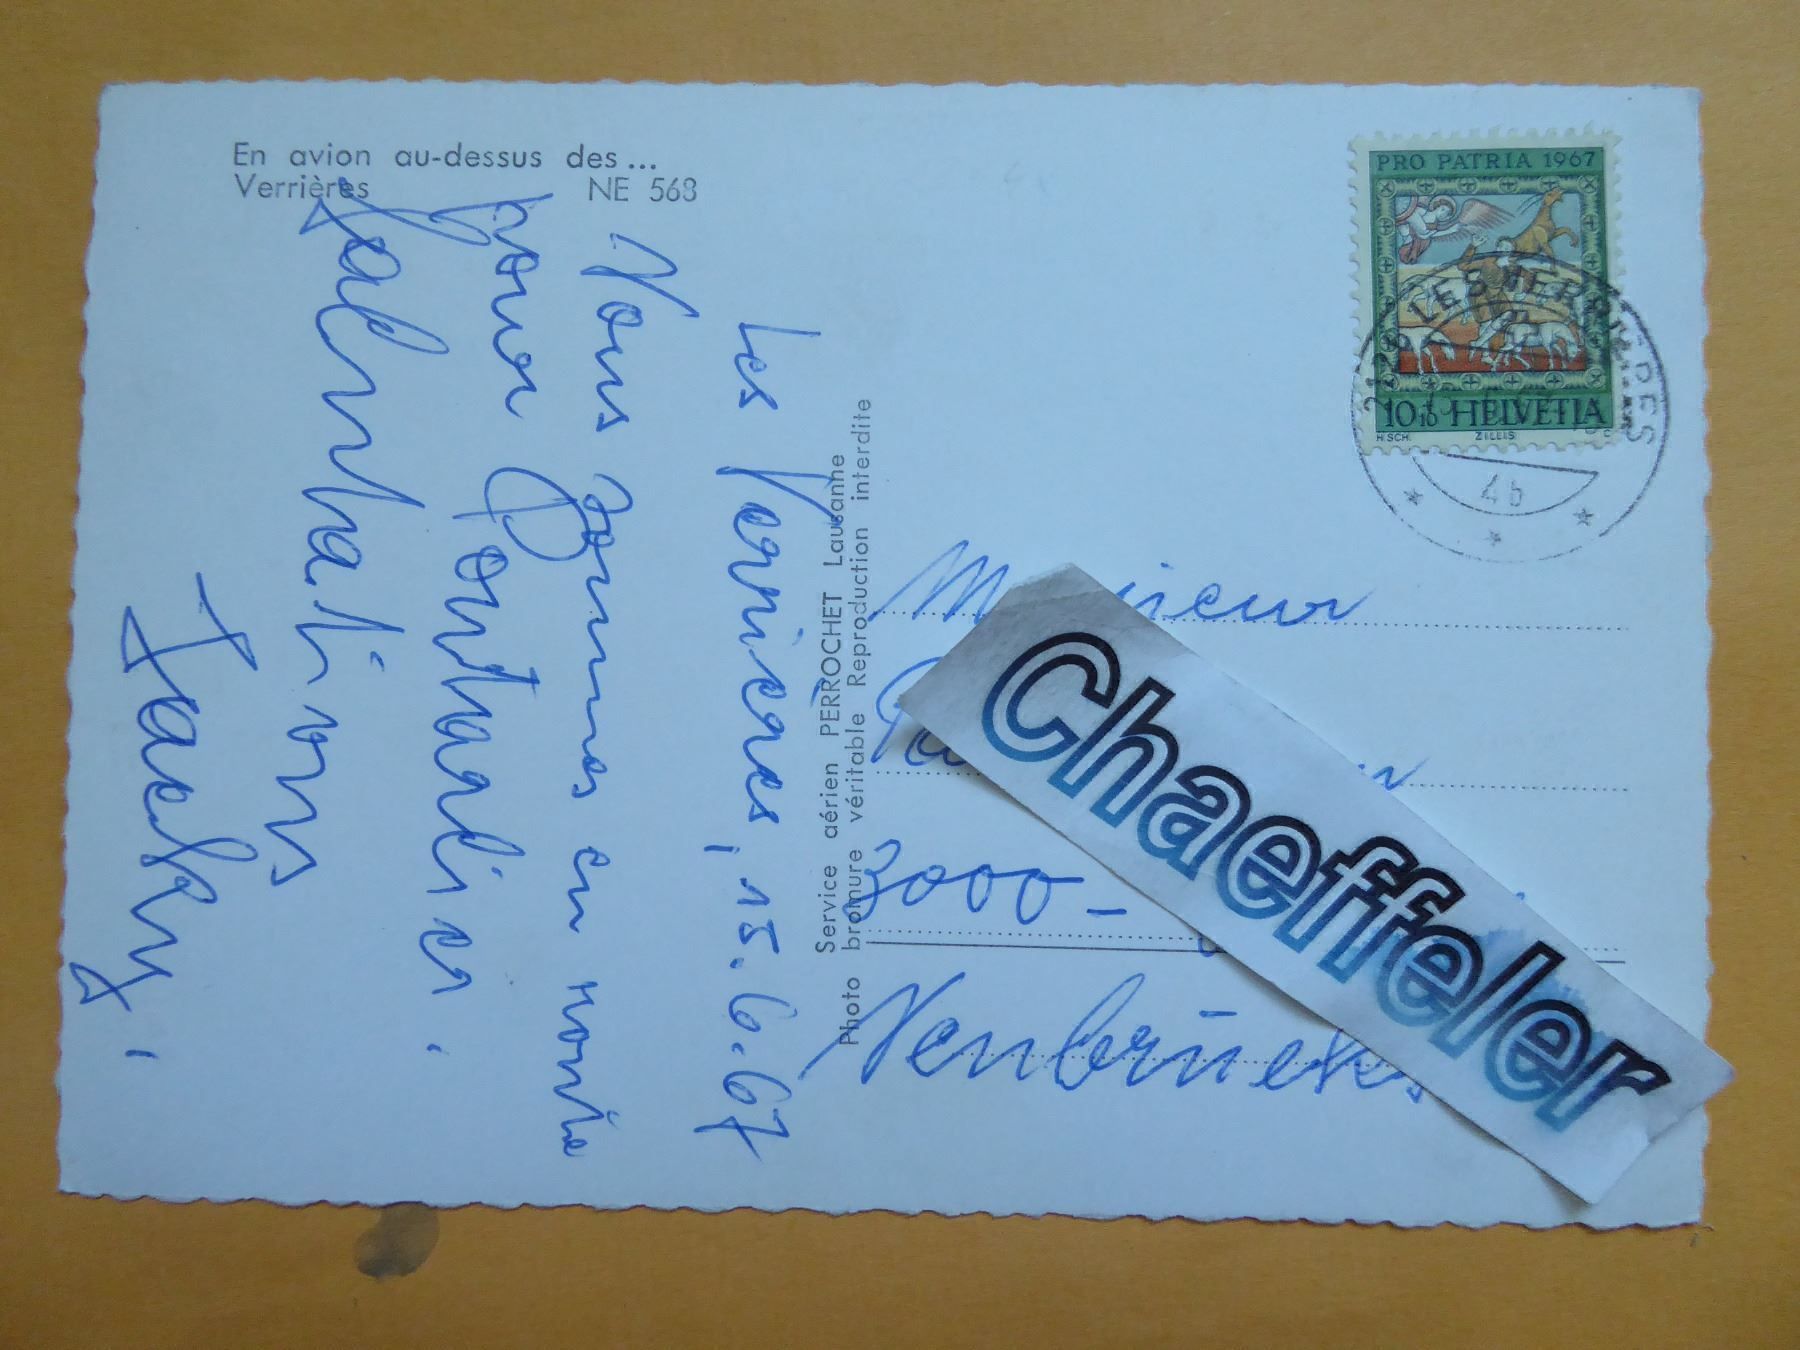 En avion au-dessus des ...
Verrières NE 568
PRO PATRIA 1967
10+10 HELVETIA
H. SCH. ZILLIS C
2126 LES VERRIÈRES
4b
Les Verrières, 15.6.67
Nous sommes en route
pour Pontarlier.
Salutations
Jacky.
Service aérien PERROCHET Lausanne
Photo bromure véritable Reproduction interdite
Monsieur
3000 -
Neubrück
Chaeffeler